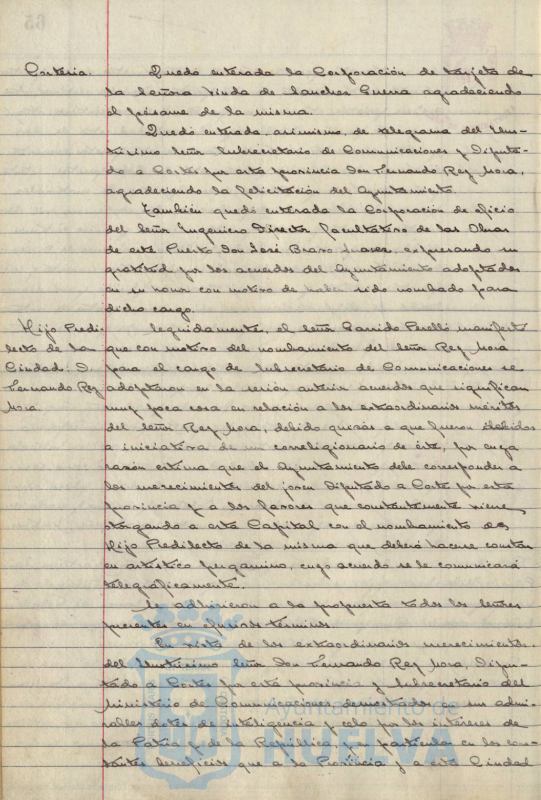 Cortesia.
Quedó enterada la Corporación de tarjeta de
la Señora Viuda de Sanchez Guerra agradeciendo
el pésame de la misma.
Quedó enterada, asimismo, de telegrama del Ilus-
trisimo Señor Subsecretario de Comunicaciones y Diputa-
do a Cortes por esta provincia Don Fernando Rey Mora,
agradeciendo la felicitación del Ayuntamiento.
También quedó enterada la Corporación de oficio
del Señor Ingeniero Director facultativo de las Obras
de este Puerto Don José Bravo Suarez, expresando su
gratitud por los acuerdos del Ayuntamiento adoptados
en su honor con motivo de haber sido nombrado para
dicho cargo.
Hijo Predi-
lecto de la
Ciudad. D.
Fernando Rey
Mora.
Seguidamente, el Señor Garrido Perelló manifestó
que con motivo del nombramiento del Señor Rey Mora
para el cargo de Subsecretario de Comunicaciones se
adoptaron en la sesión anterior acuerdos que significan
muy poca cosa en relación a los extraordinarios méritos
del Señor Rey Mora, debido quizás a que fueron debidos
a iniciativa de un correligionario de éste, por cuya
razón estima que el Ayuntamiento debe corresponder a
los merecimientos del joven Diputado a Cortes por esta
provincia y a los favores que constantemente viene
otorgando a esta Capital con el nombramiento de
Hijo Predilecto de la misma que deberá hacerse constar
en artístico pergamino, cuyo acuerdo se le comunicará
telegráficamente.
Se adhirieron a la propuesta todos los Señores
presentes en efusivos terminos.
En vista de los extraordinarios merecimientos
del Ilustrisimo Señor Don Fernando Rey Mora, Dipu-
tado a Cortes por esta provincia y Subsecretario del
Ministerio de Comunicaciones, demostrados en sus admi-
rables dotes de inteligencia y celo por los intereses de
la Patria y de la República, y en particular en los cons-
tantes beneficios que a la Provincia y a esta Ciudad
Ayuntamiento de
HUELVA